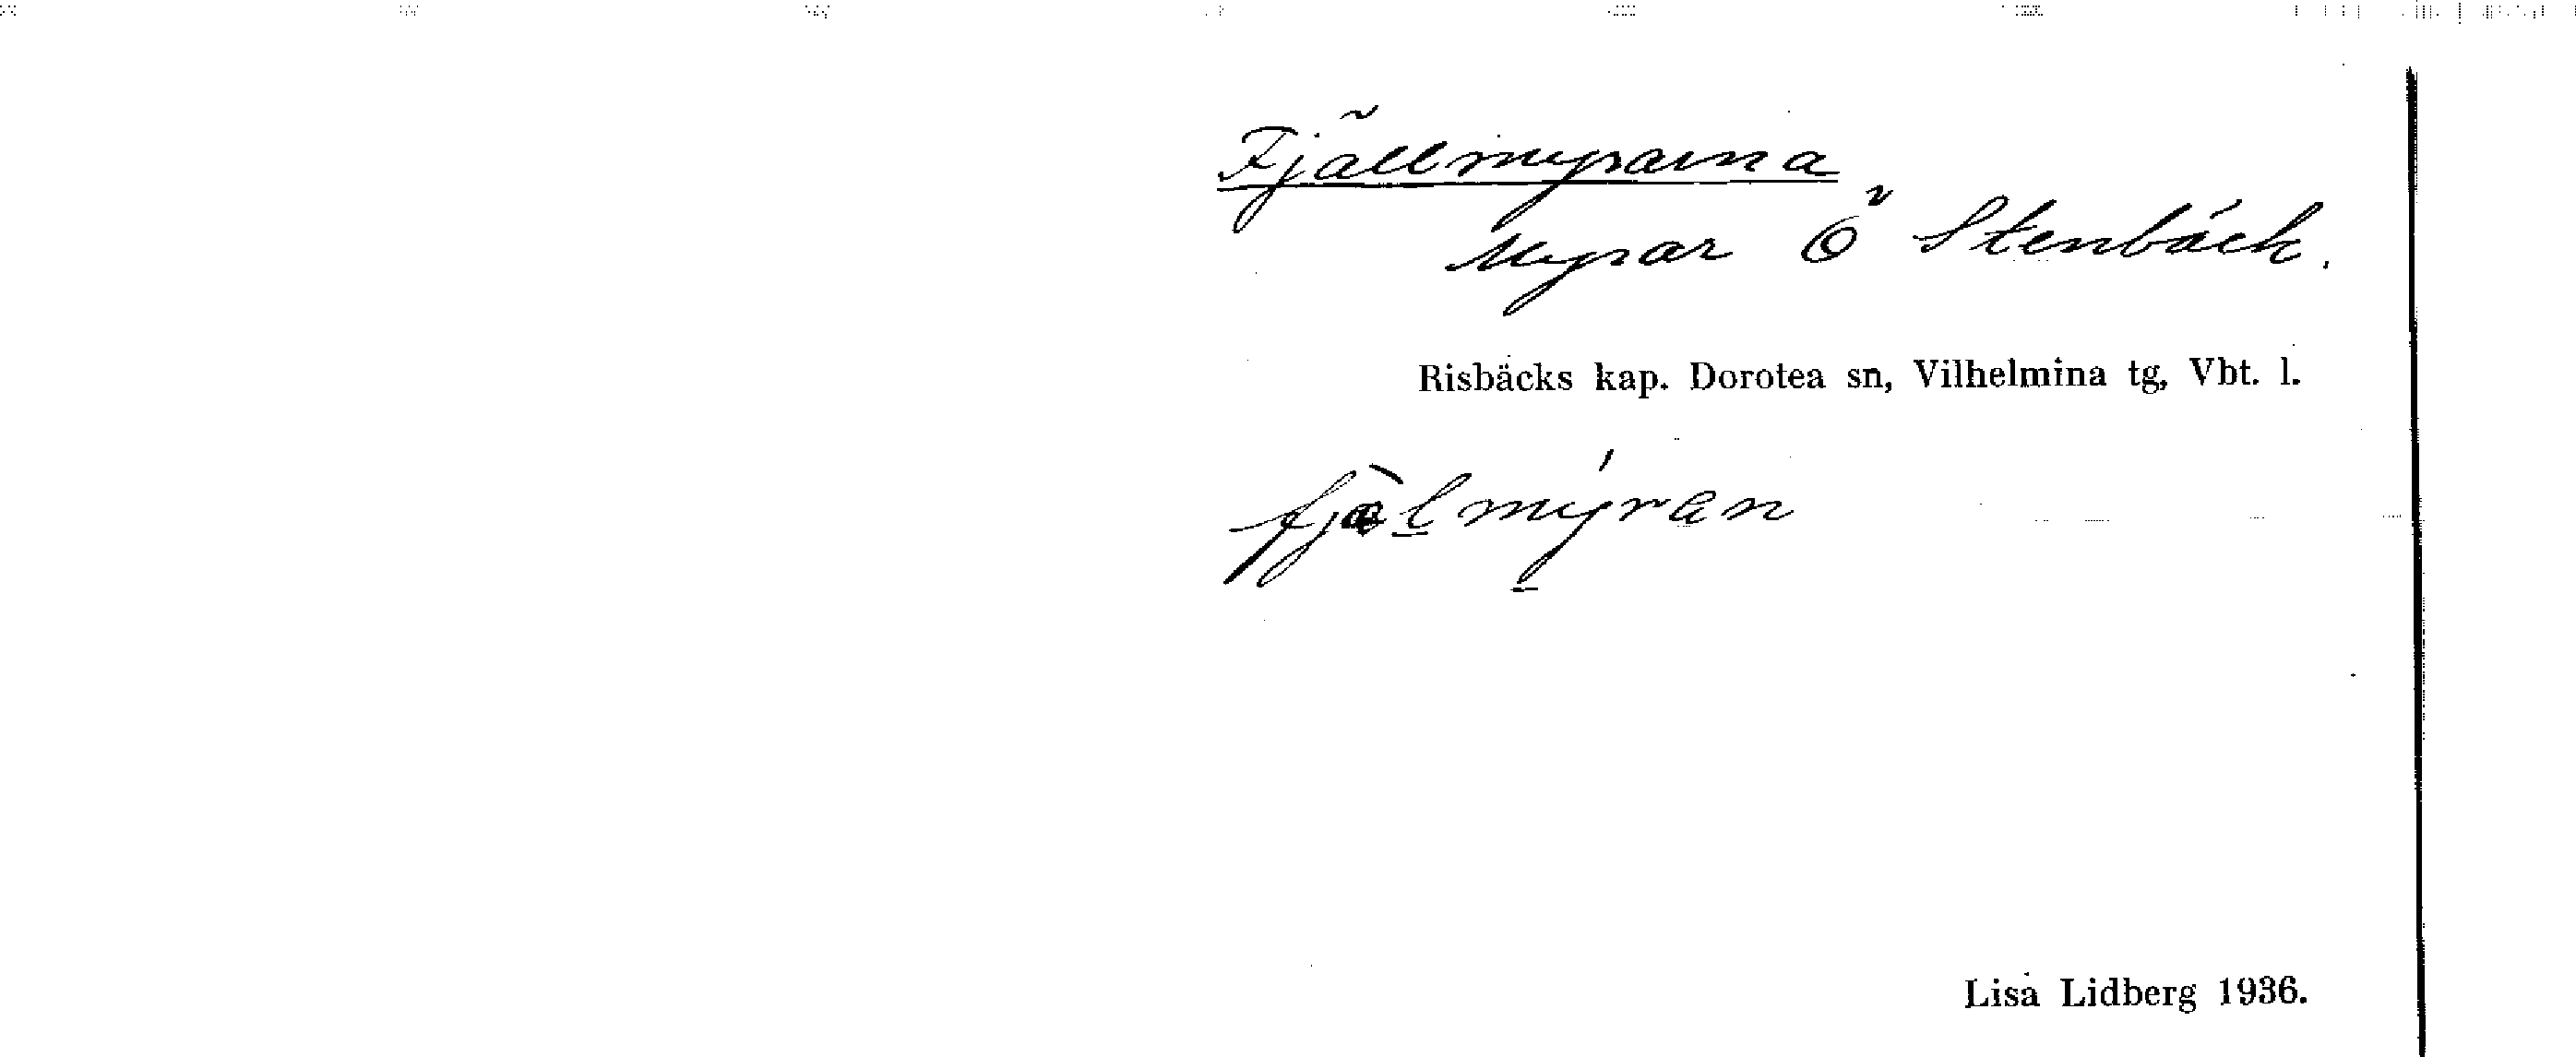 Fjällmyrarna
Myrar Ö Stenbäck.
Risbäcks kap. Dorotea sn, Vilhelmina tg, Vbt. l.
fjæ̀lmýran
Lisa Lidberg 1936.